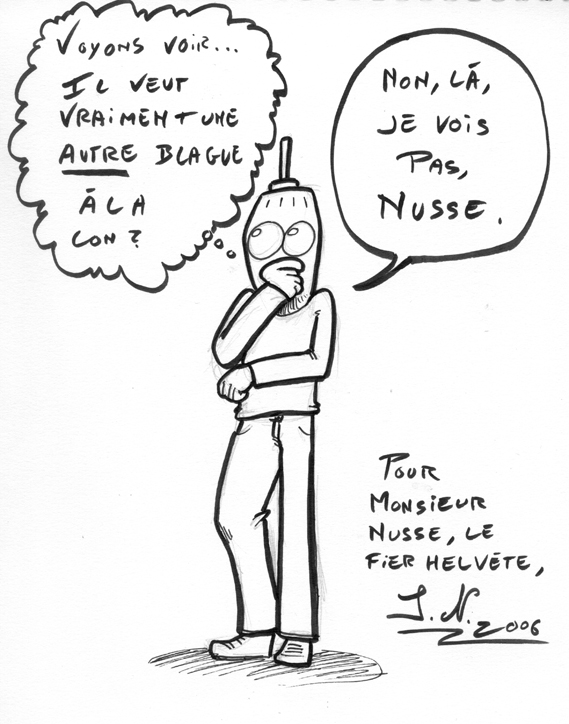 VOYONS VOIR...
IL VEUT
VRAIMENT UNE
AUTRE BLAGUE
À LA
CON ?
NON, LÀ,
JE VOIS
PAS,
NUSSE.
POUR
MONSIEUR
NUSSE, LE
FIER HELVÈTE,
J.N. 2006